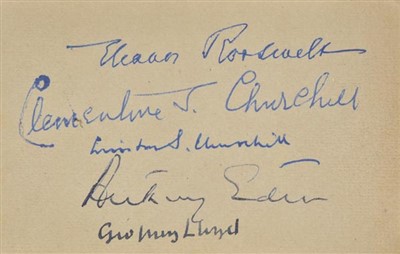 Eleanor Roosevelt
Clementine S. Churchill
Winston S. Churchill
Anthony Eden
Geoffrey Lloyd